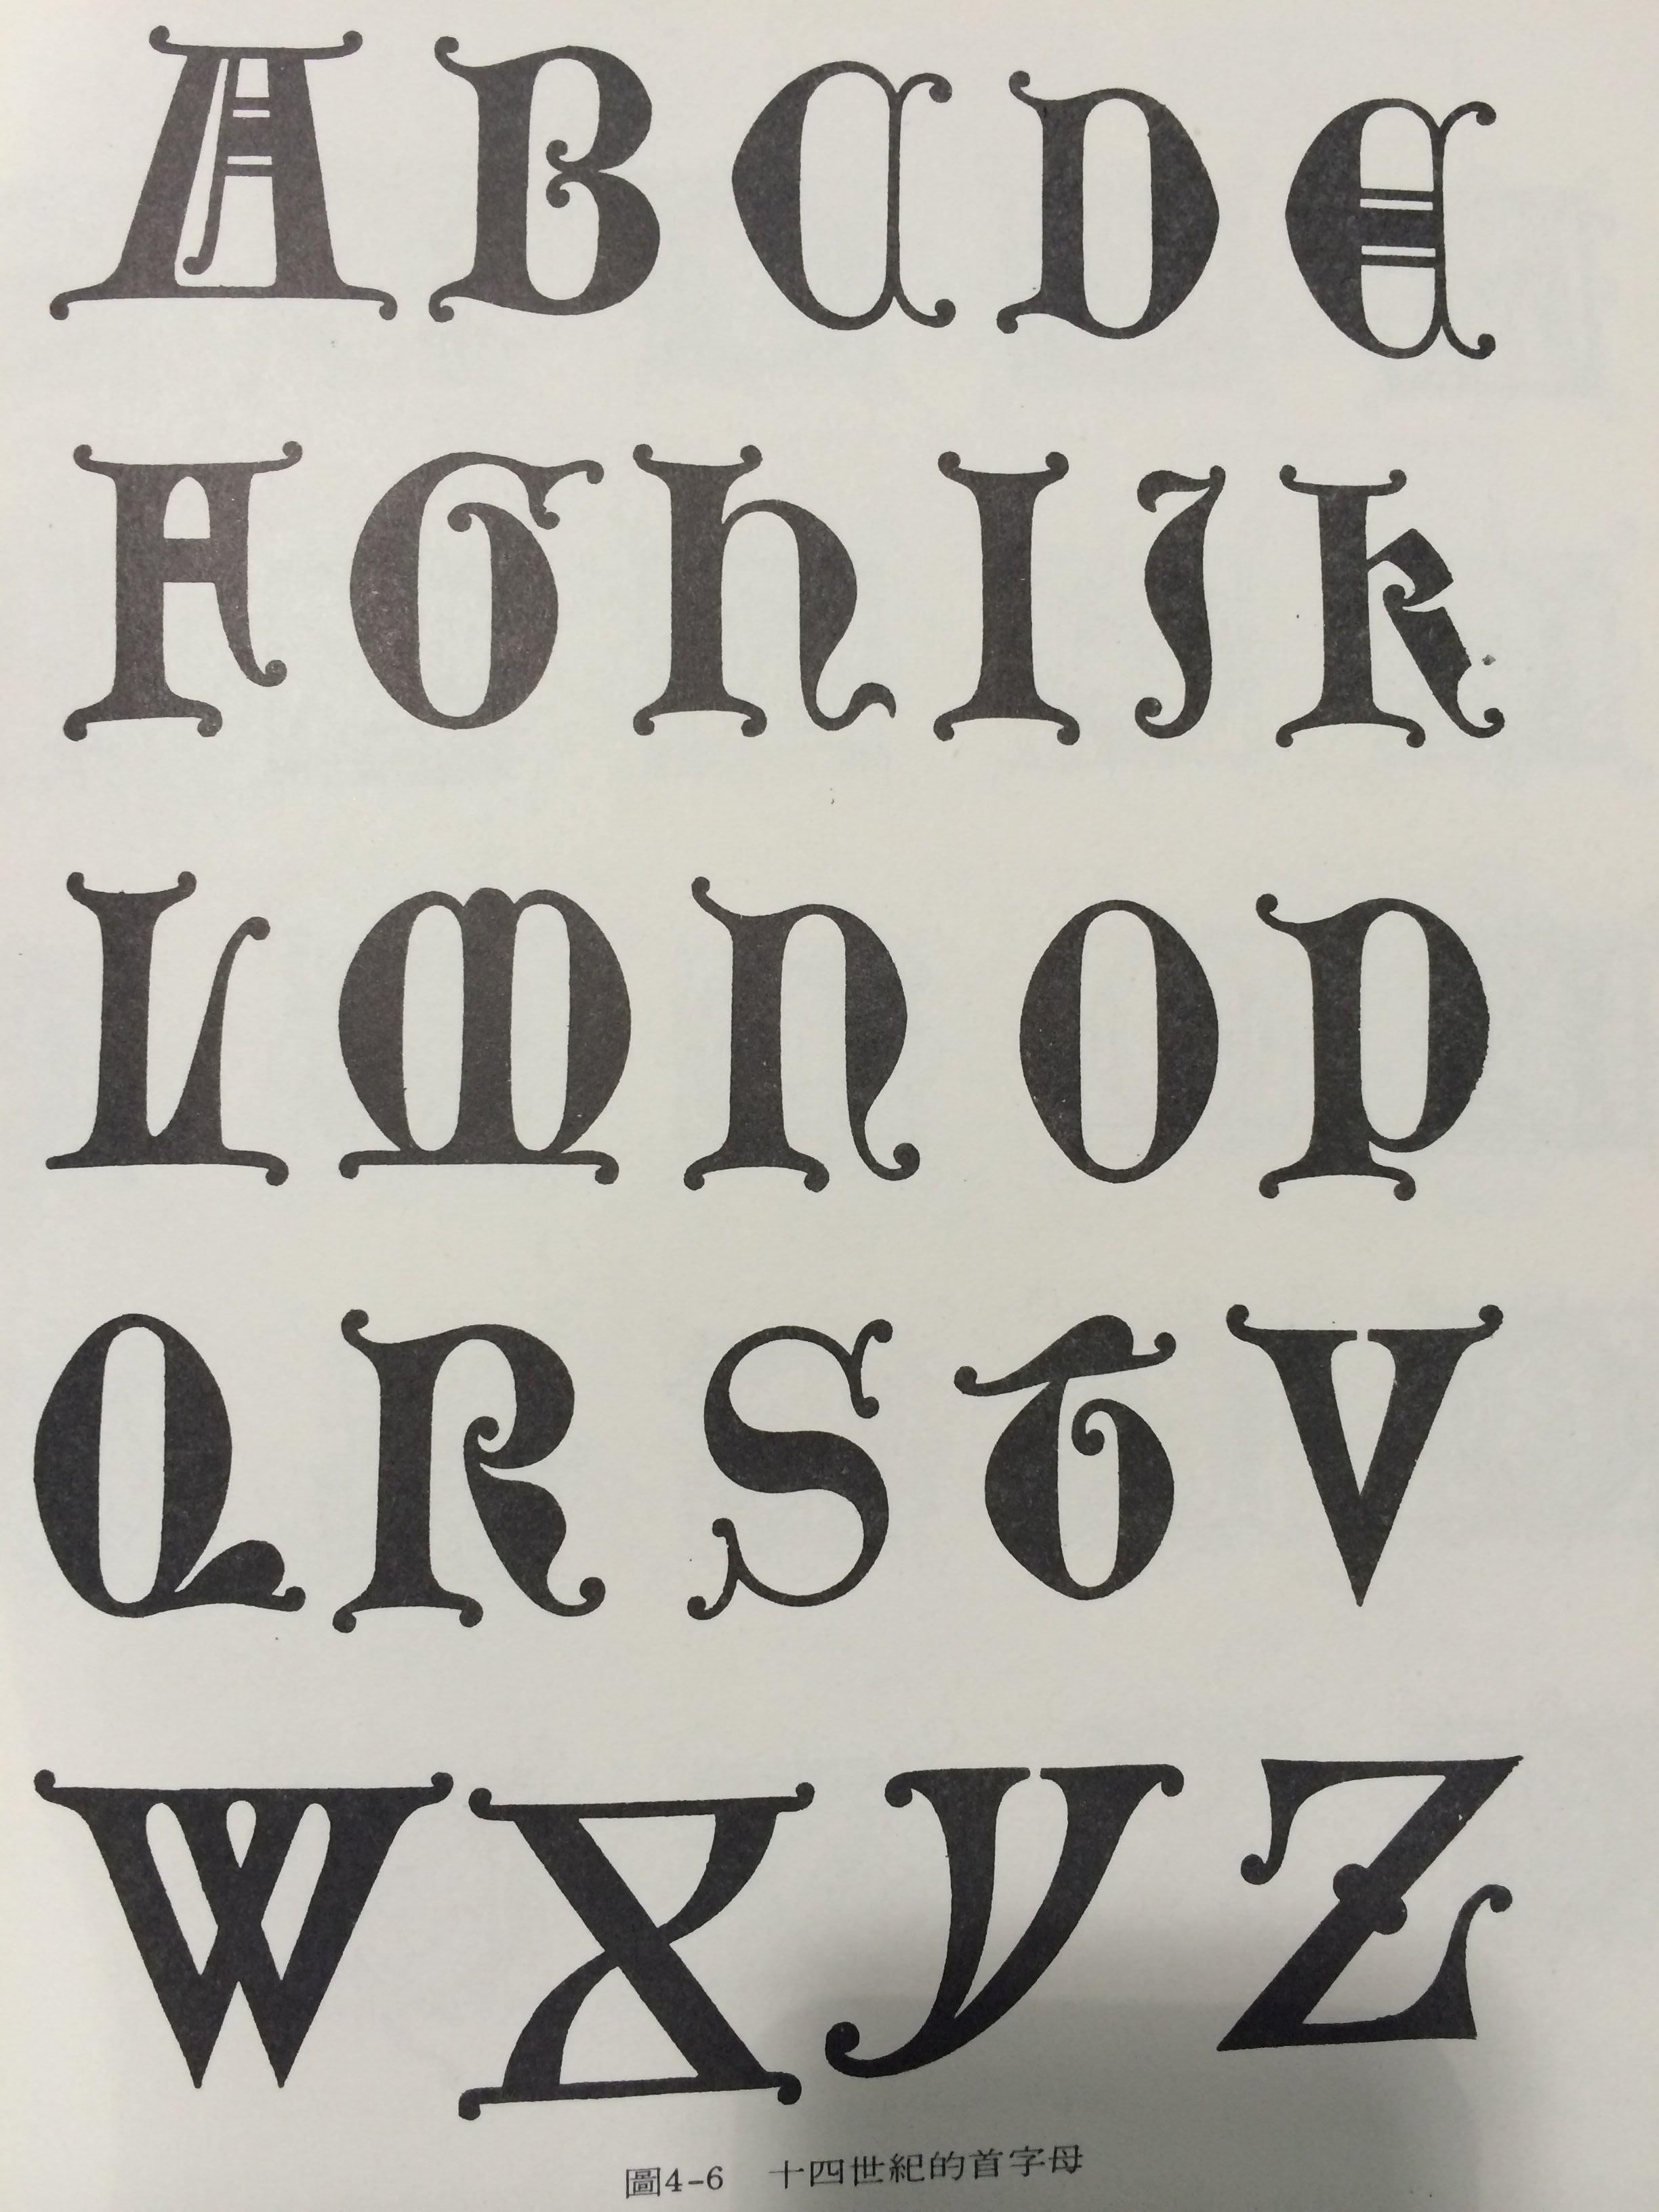 A B C D E
F G H I J K
L M N O P
Q R S T V
W X Y Z
圖4-6 十四世紀的首字母